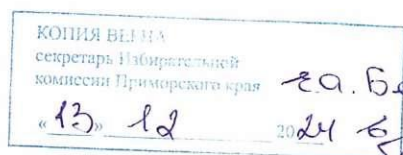 КОПИЯ ВЕРНА
секретарь Избирательной
комиссии Приморского края
«13» 12 2024